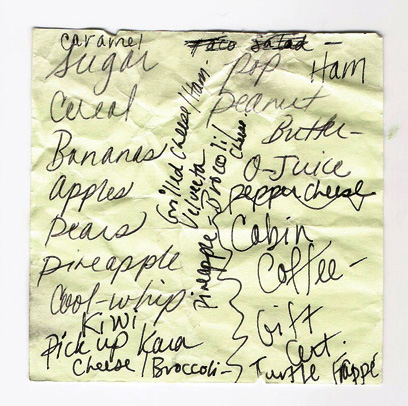 caramel
Sugar
Cereal
Bananas
Apples
Pears
Pineapple
Cool-whip
Kiwi
Pick up Kara
Cheese/Broccoli-
Grilled Cheese/Ham
Velveeta
Pineapple Broccoli
Cheese
Taco Salad -
Pop Ham
Peanut
Butter-
O-Juice
Pepper Cheese
Cabin
Coffee-
Gift
Cert.
Turtle Frappe